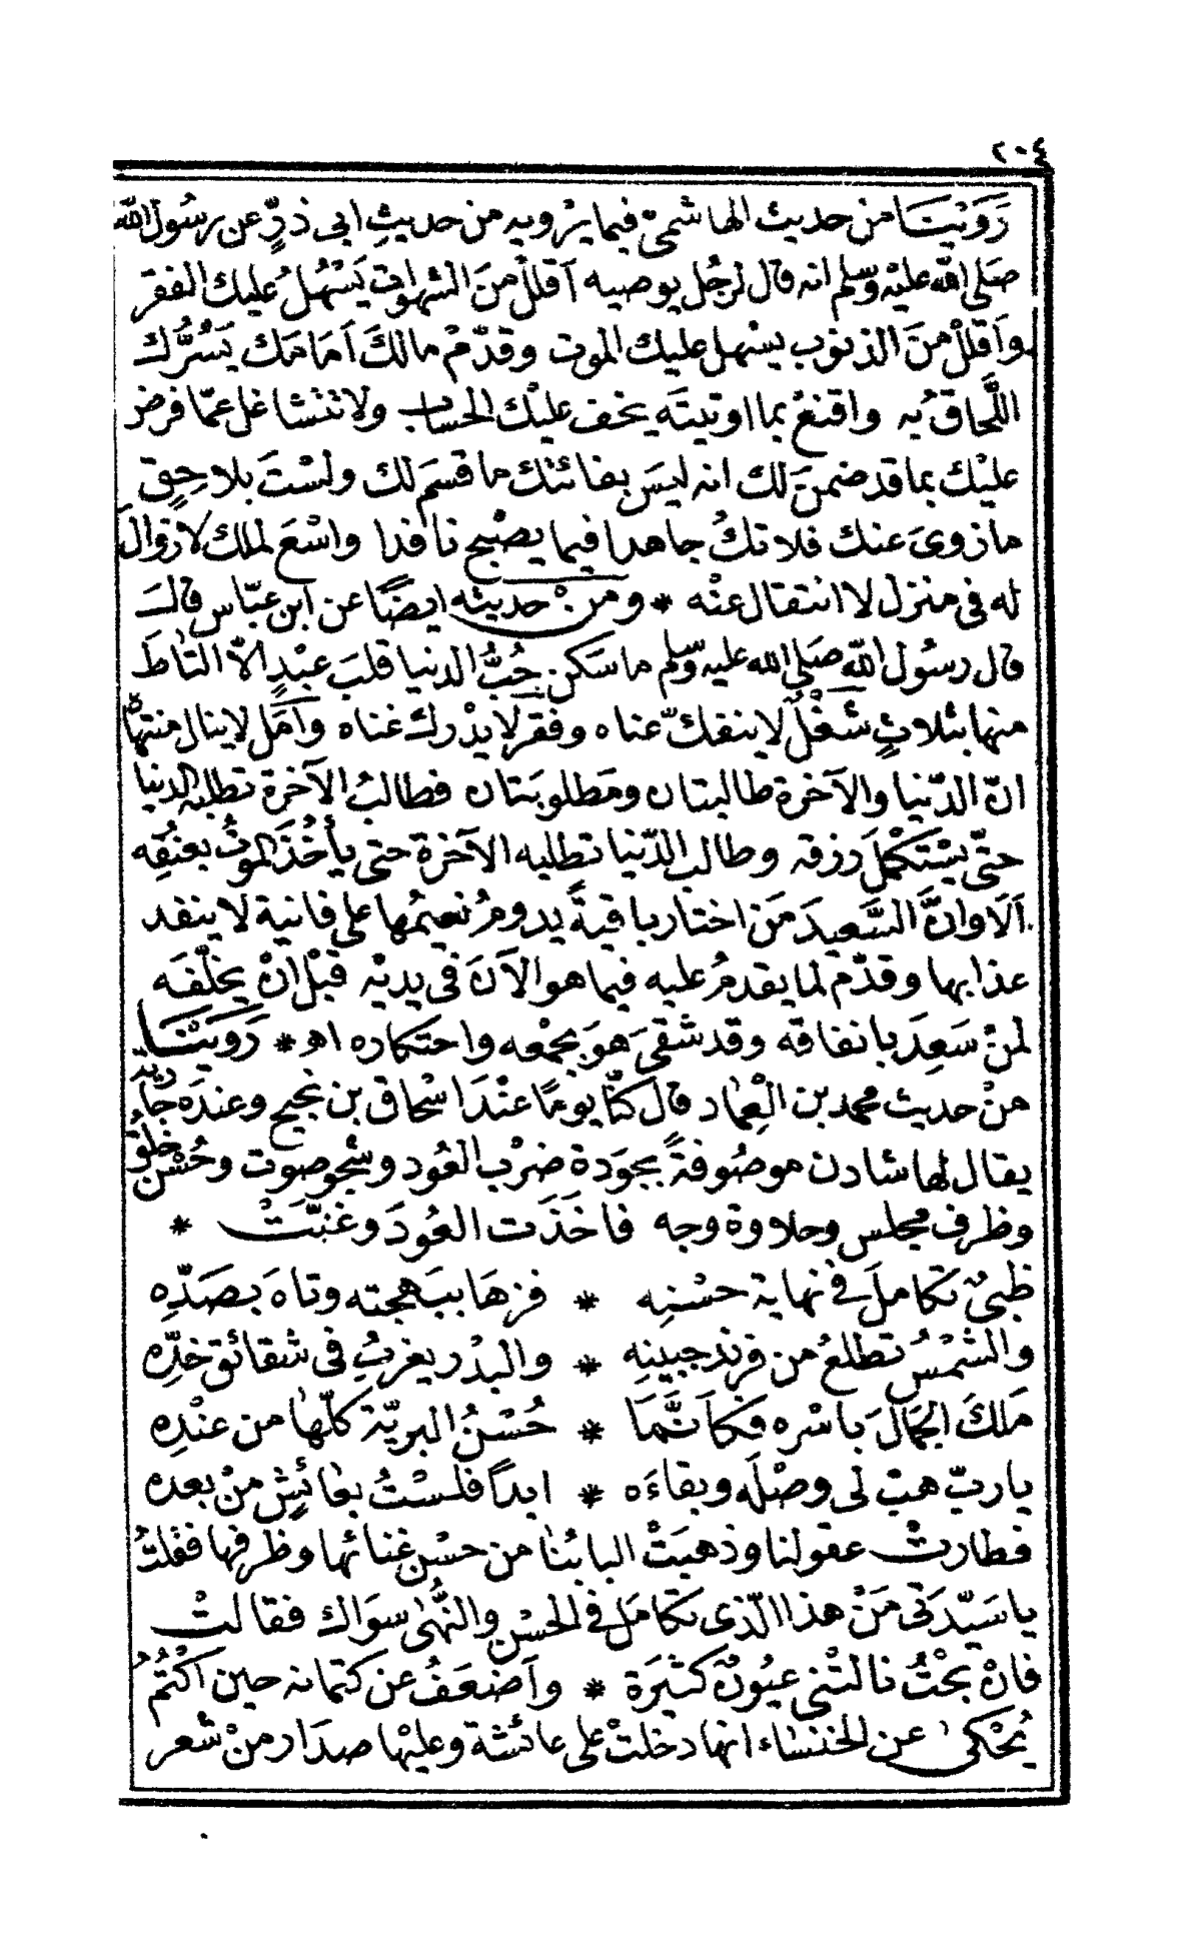 ٢٠٤
رَوَيْنَا من حديث الهاشمىّ فيما يرْويه من حديثِ ابى ذرٍّ عن رسُول الله
صَلى الله عليْه وسّلم انه قال لرجُل يوصيه آقللْ منَ الشهوات يَسْهُلُ عليك الفقر
وآقللْ منَ الذنوب يسْهل عليك الموت وقدّمْ مالكَ أمَامَك يَسُرُّك
اللَّحاقُ به واقنعْ بما اوتيتَه يخف عليْك الحساب ولا تتشاغل عمّا فرض
عليْك بما قد ضمنَ لك انه ليسَ بفائتك ما قسمَ لك ولسْتَ بلاحِقٍ
ما زوىَ عنك فلا تكُ جاهدا فيما يصْبح نافدا واسْعَ لملك لا زوالَ
له فى منزل لا انتقال عنْه * ومن حديثه ايضًا عن ابن عبّاس قالَ
قال رسُول الله صَلى الله عليه وسّلم ما سَكن حُبُّ الدنيا قلبَ عبْدٍ الاّ التاطَ
منها بثلاثٍ شغْلٌ لا ينفكّ عناه وفقر لا يدْرك غناه وآمَل لا ينال منتهاه
انّ الدّنيا والآخرة طالبتان ومَطلوبَتان فطالبُ الآخرة تطلبه الدنيا
حتّى يسْتكْملَ رزقه وطالب الدّنيا تطلبه الآخرة حتى يأخُذَ الموتُ بعنُقِه
آلَا وانَّ السَّعيدَ مَن اختار باقيةً يدومُ نعيمُها على فانية لا ينفد
عذابها وقدّم لما يقدمُ عليه فيما هو الآنَ فى يديْه قبْل انْ يخلّفَه
لمنْ سَعِدَ بانفاقه وقد شقىَ هوَ بجمْعه واحتكاره اه * رَوَيْنَا
منْ حديث محمد بن العِماد قال كنّا يومًا عنْدَ اسْحاق بن نجيح وعندَه جارية
يقال لها شادن موصُوفةً بجوَدة ضرْب العُود وشجو صوت وحُسْن خلُق
وظرف مجلس وحلاوة وجه فاخَذَت العُودَ وغنّتَ *
ظبىٌ تكاملَ فى نهاية حسْنِه * فزهَا ببَهجته وتاهَ بصَدّه
والشمْسُ تطلعُ من فرند جبينِه * والبدْر يغربُ فى شقائق خدِّه
مَلكَ الجمالَ باسْره فكأنَّمَا * حُسْنُ البريّة كلّها من عنْدِه
يا ربّ هبْ لى وصْلَه وبقاءَه * ابداً فلسْتُ بعائشٍ منْ بعده
فطارتْ عقولنا وذهبَتْ البابُنا من حسْن غنائها وظرفها فقلتُ
يا سَيّدتى مَنْ هذا الّذى تكامَل فى الحسْن والنُّهى سوَاك فقالتْ
فانْ بحْتُ نالتْنى عيُونٌ كثيَرة * وآضْعَفُ عن كتمانه حين آكْتُمُ
يُحْكى عن الخنساء انها دخلتْ على عائشة وعليْها صدَار منْ شعر